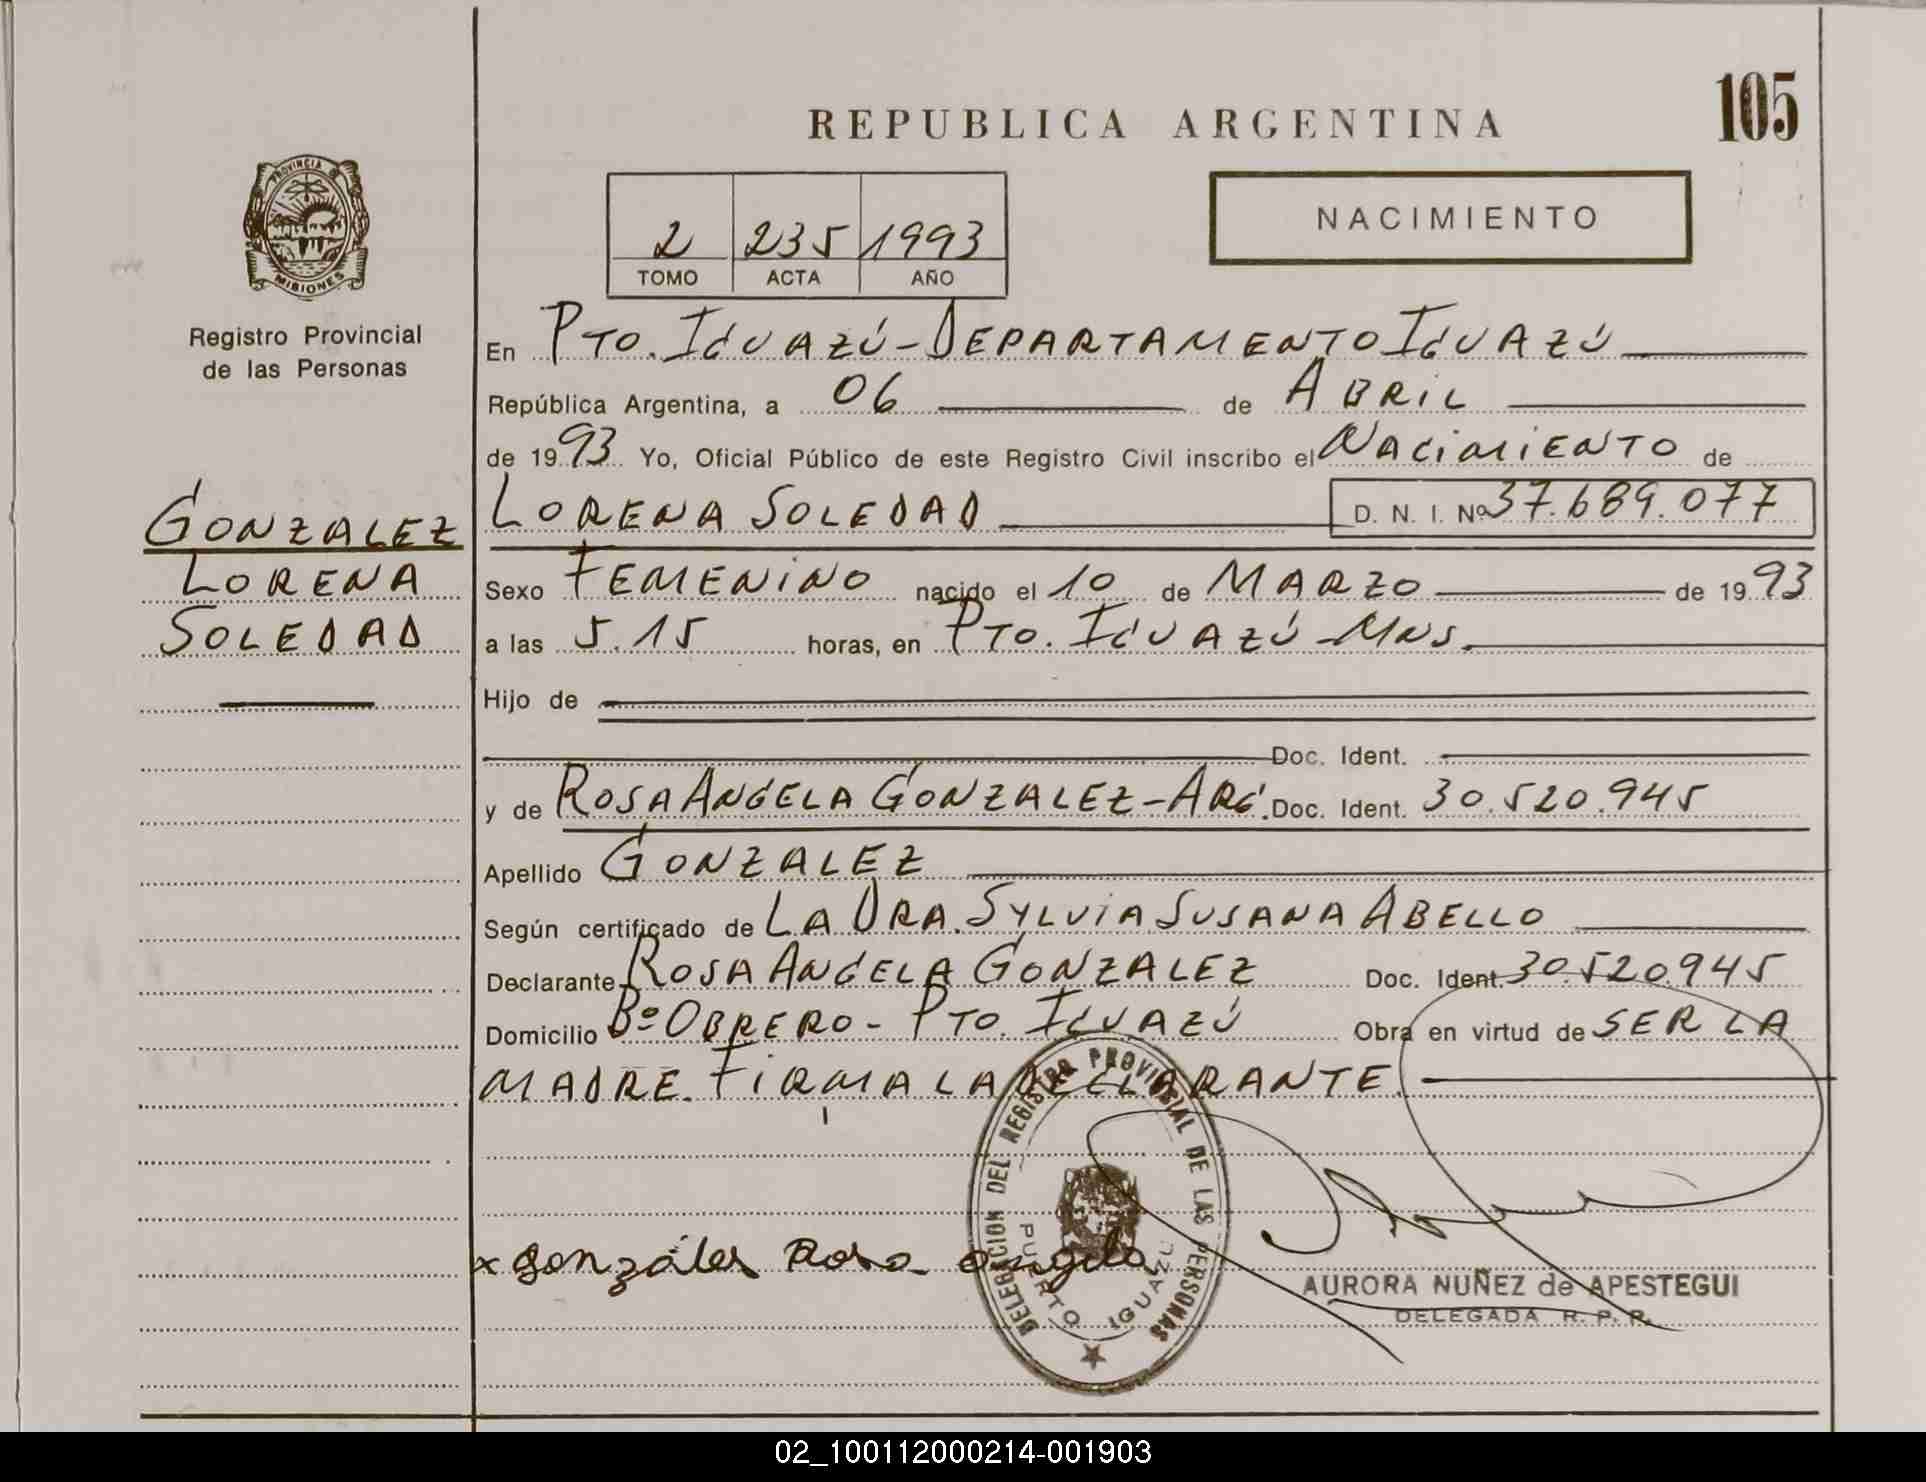 105
REPUBLICA ARGENTINA
PROVINCIA DE
MISIONES
Registro Provincial
de las Personas
2 235 1993
TOMO ACTA AÑO
NACIMIENTO
En PTO. IGUAZÚ - DEPARTAMENTO IGUAZÚ
República Argentina, a 06 de ABRIL
de 1993 Yo, Oficial Público de este Registro Civil inscribo el NACIMIENTO de
GONZALEZ
LORENA
SOLEDAD
LORENA SOLEDAD D. N. I. Nº 37.689.077
Sexo FEMENINO nacido el 10 de MARZO de 1993
a las 5.15 horas, en PTO. IGUAZÚ - MNS.
Hijo de
Doc. Ident.
y de ROSA ANGELA GONZALEZ - ARG. Doc. Ident. 30.520.945
Apellido GONZALEZ
Según certificado de LA DRA. SYLVIA SUSANA ABELLO
Declarante ROSA ANGELA GONZALEZ Doc. Ident. 30.520.945
Domicilio Bº OBRERO - PTO. IGUAZÚ Obra en virtud de SER LA
MADRE. FIRMA LA DECLARANTE.
DELEGACION DEL REGISTRO PROVINCIAL DE LAS PERSONAS
PUERTO IGUAZU
x González Rosa Angela
AURORA NUÑEZ de APESTEGUI
DELEGADA R. P. P.
02_100112000214-001903